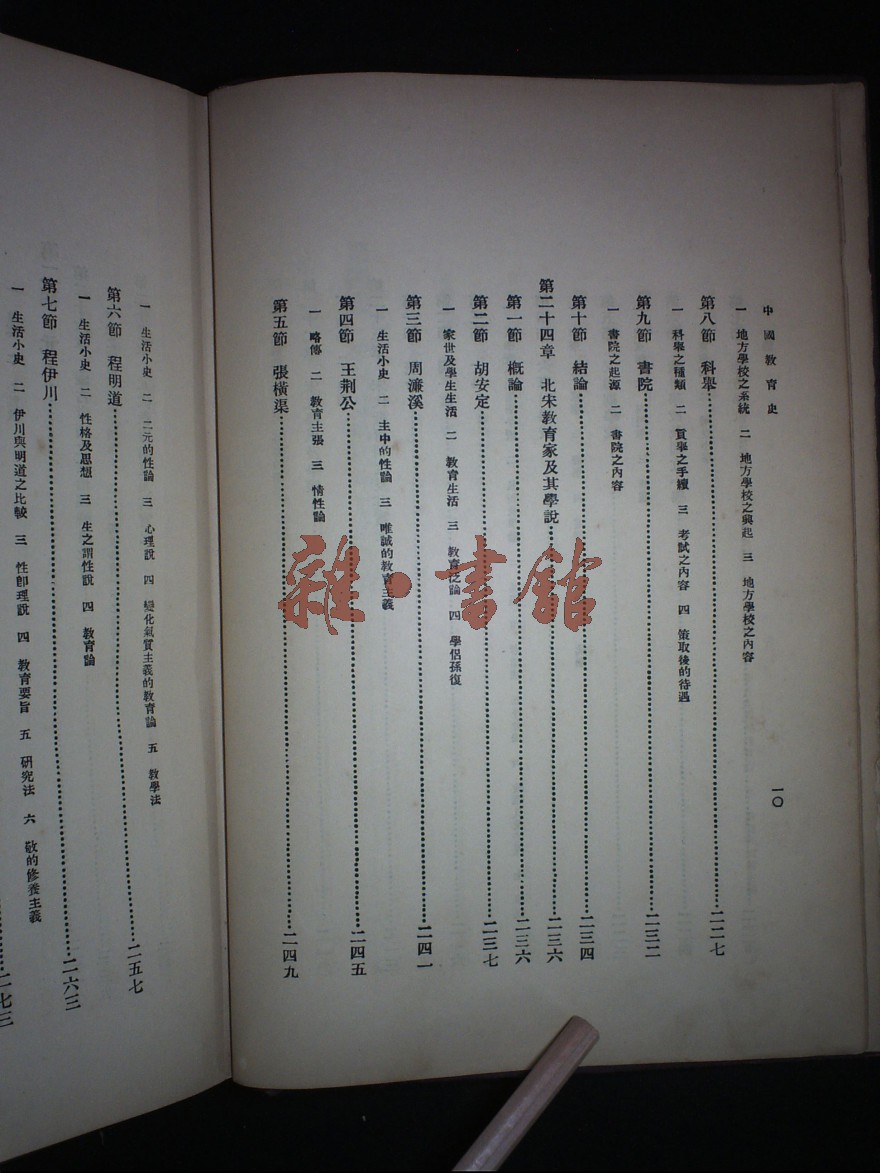 中國教育史
一〇
一 地方學校之系統 二 地方學校之興起 三 地方學校之內容
第八節 科舉……二二七
一 科舉之種類 二 貢舉之手續 三 考試之內容 四 策取後的待遇
第九節 書院……二三二
一 書院之起源 二 書院之內容
第十節 結論……二三四
第二十四章 北宋教育家及其學說……二三六
第一節 概論……二三六
第二節 胡安定……二三七
一 家世及學生生活 二 教育生活 三 教育泛論 四 學侶孫復
第三節 周濂溪……二四一
一 生活小史 二 主中的性論 三 唯誠的教育主義
第四節 王荆公……二四五
一 略傳 二 教育主張 三 情性論
第五節 張橫渠……二四九
一 生活小史 二 二元的性論 三 心理說 四 變化氣質主義的教育論 五 教學法
第六節 程明道……二五七
一 生活小史 二 性格及思想 三 生之謂性說 四 教育論
第七節 程伊川……二六三
一 生活小史 二 伊川與明道之比較 三 性卽理說 四 教育要旨 五 研究法 六 敬的修養主義
二七三
雜·書館